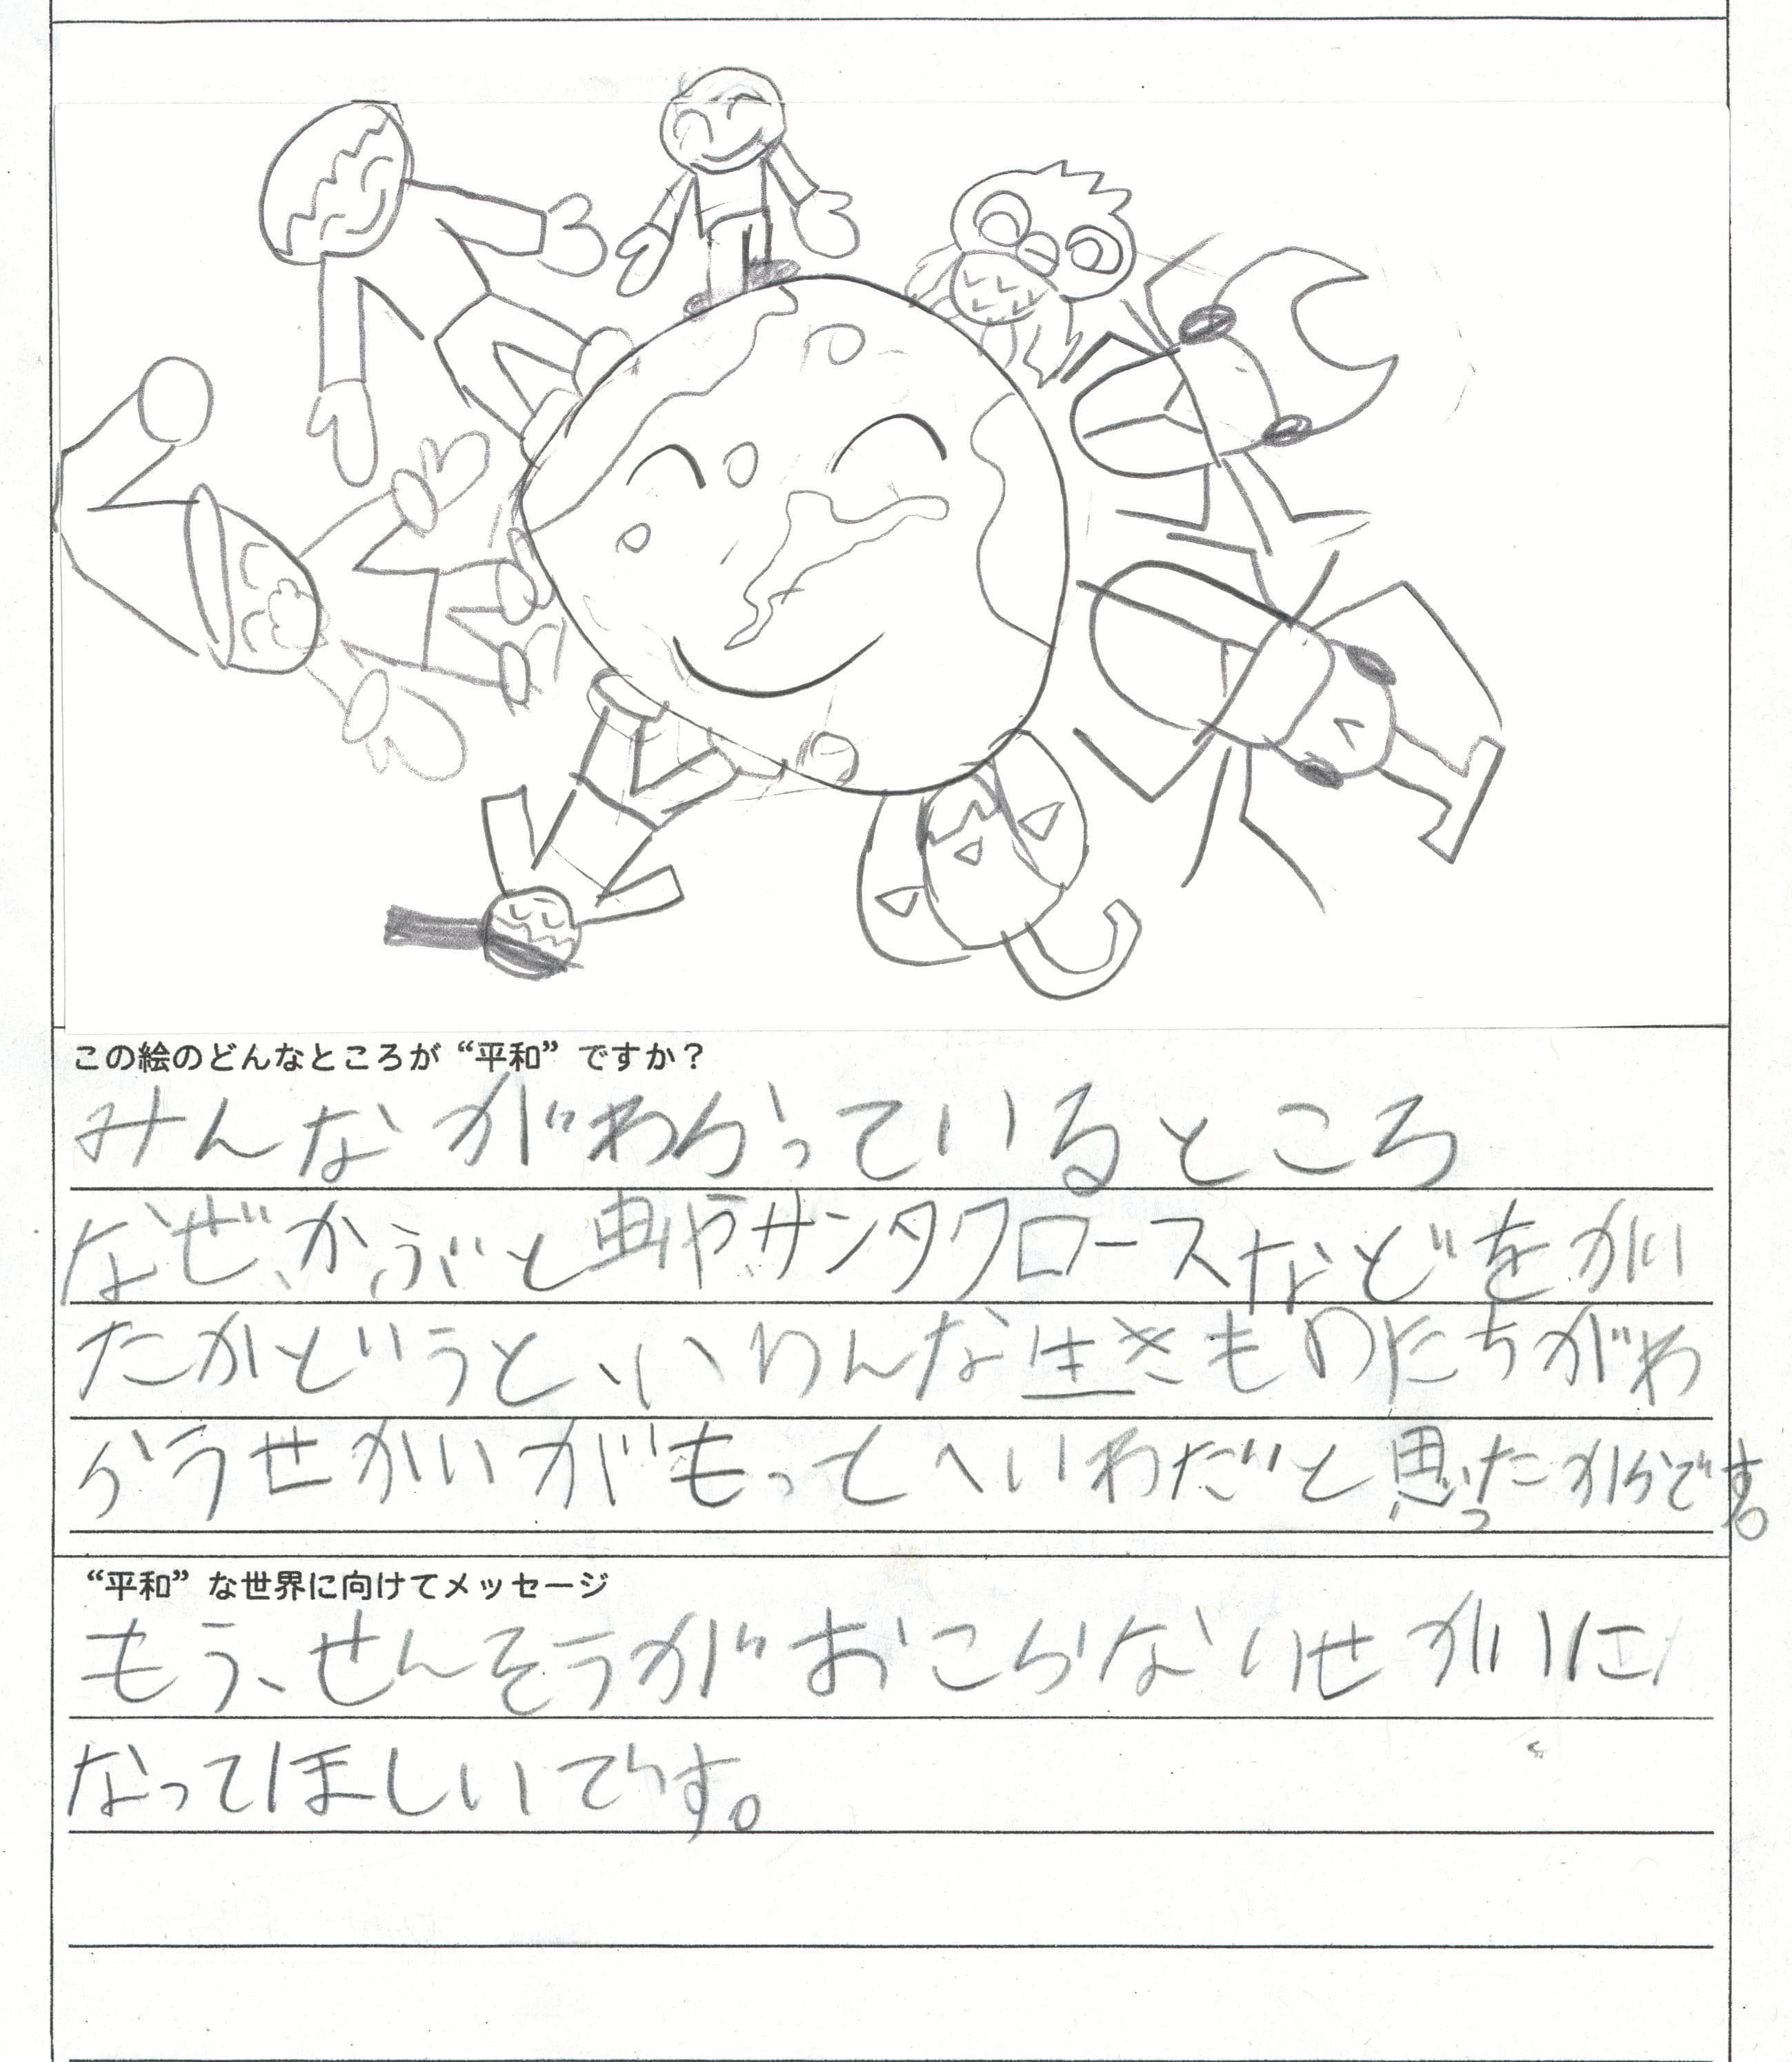 この絵のどんなところが“平和”ですか？
みんながわらっているところ
なぜ、かぶと虫や、サンタクロースなどをかい
たかというと、いろんな生きものたちがわ
らうせかいがもっとへいわだと思ったからです。
“平和”な世界に向けてメッセージ
もう、せんそうがおこらないせかいに
なってほしいです。